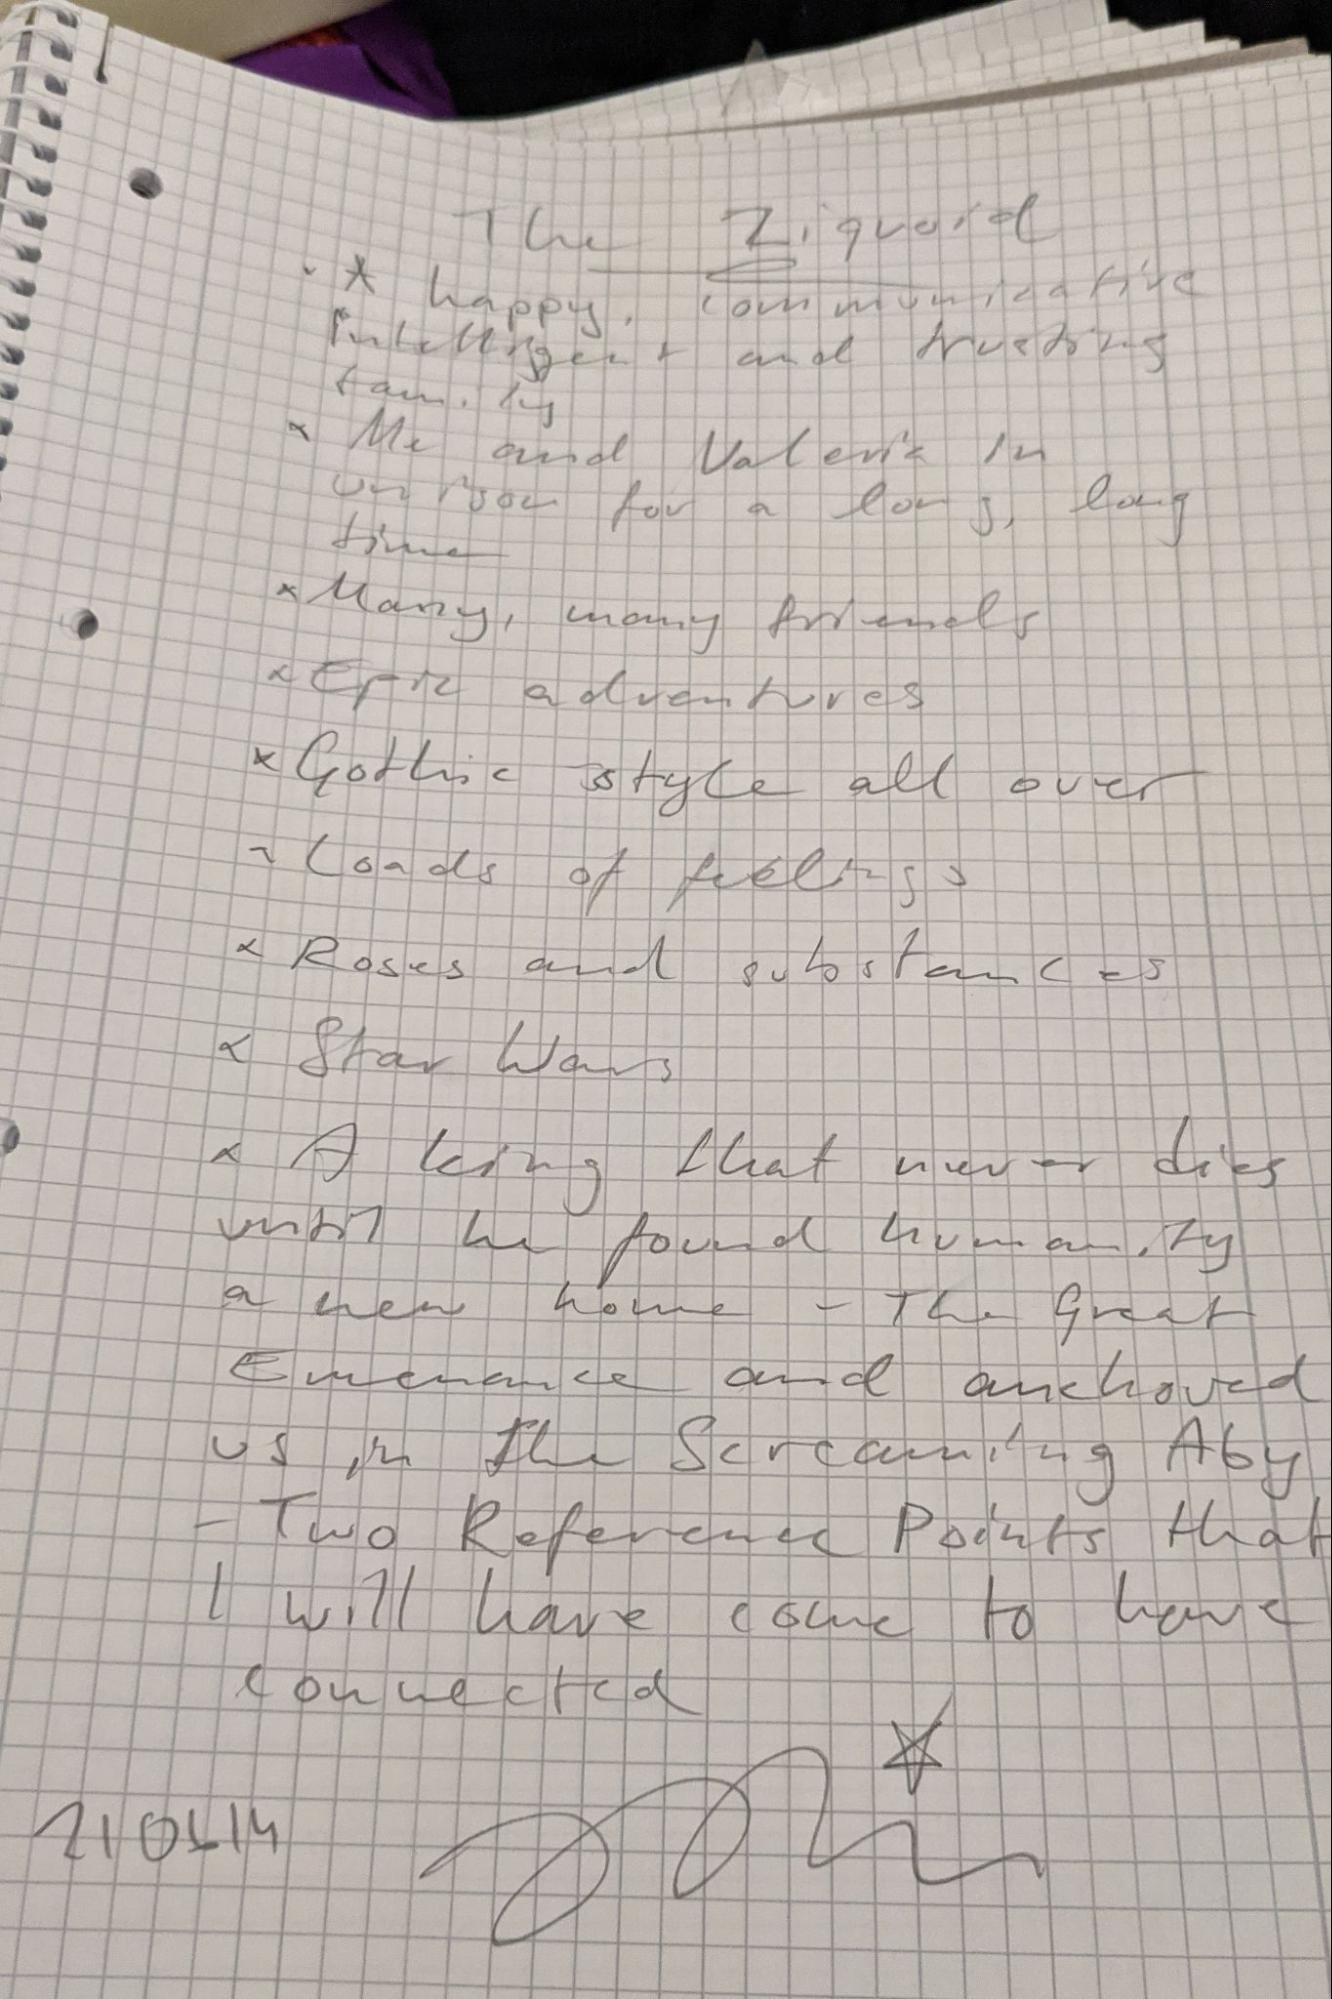 The Ziquoid
· A happy, communicative
intelligent and trusting
family
× Me and Valerie in
unison for a long, long
time
× Many, many friends
× Epic adventures
× Gothic style all over
~ Loads of feelings
× Roses and substances
× Star Wars
× A king that never dies
until he found humanity
a new home - The Great
and anchored
us in the Screaming Aby
- Two Reference Points that
I will have come to have
connected